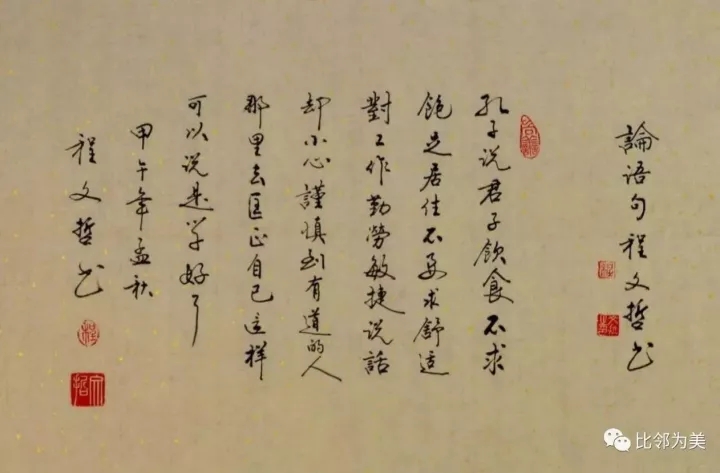 論语句程文哲书
孔子说君子飲食不求
飽足居住不要求舒适
對工作勤勞敏捷说話
却小心謹慎到有道的人
那里去匡正自己这样
可以说是学好了
甲午年孟秋
程文哲书
文哲
比邻为美